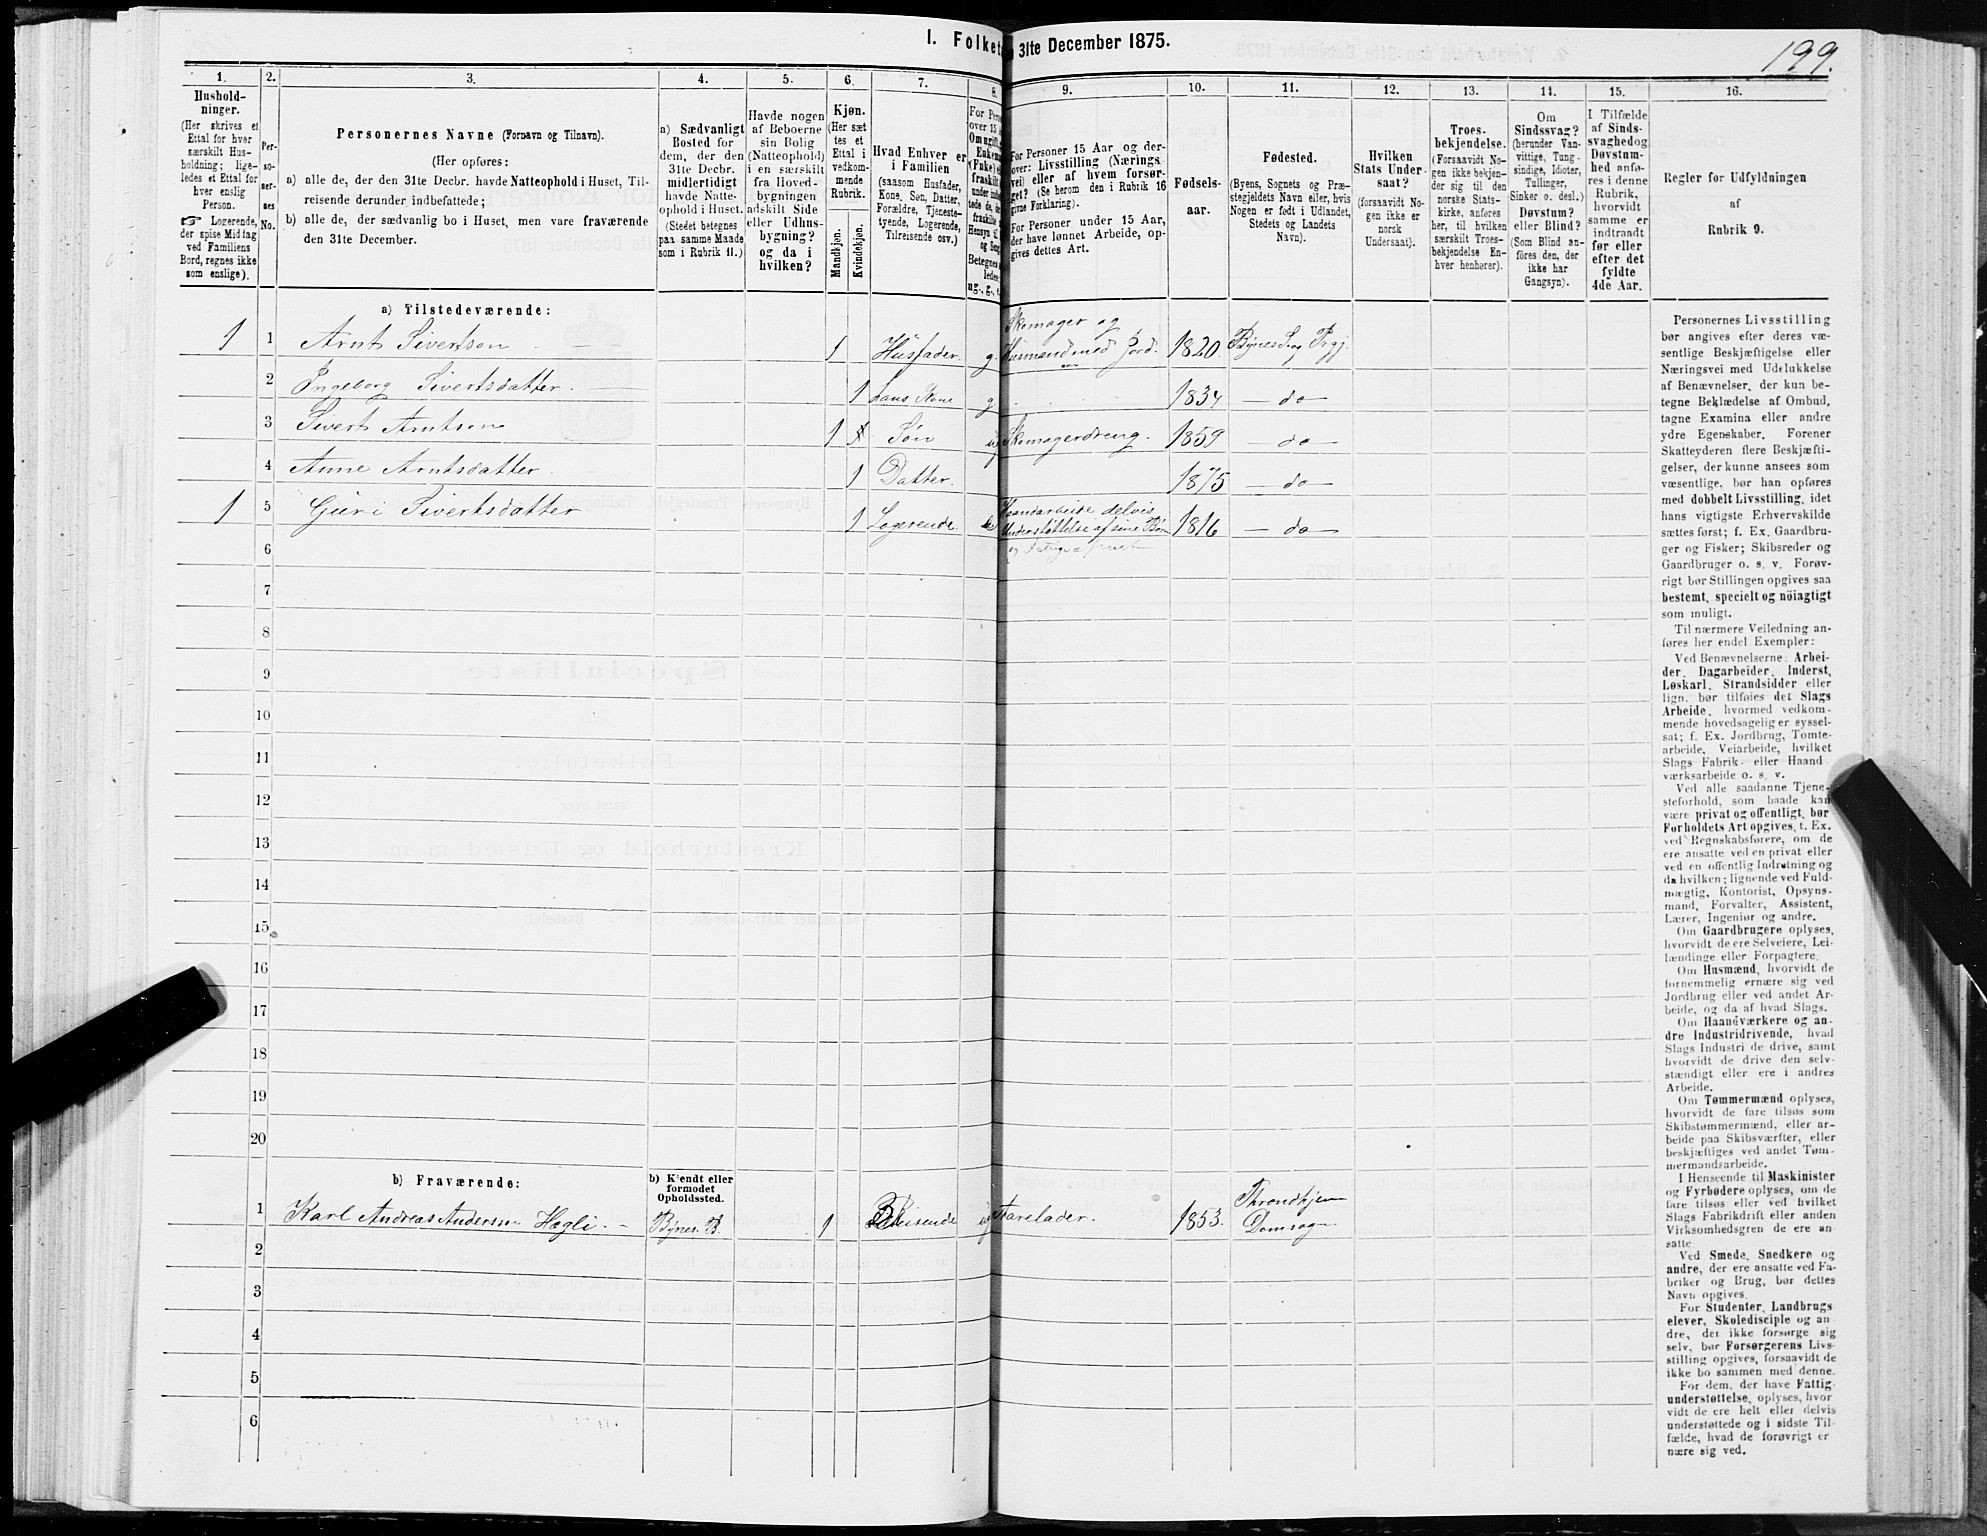 I. Folket
31te December 1875.
199.
1.
2.
3.
4.
5.
6.
7.
8.
9.
10.
11.
12.
13.
14.
15.
16.
Hushold-
ninger.
(Her skrives et
Ettal for hver
særskilt Hus-
holdning; lige-
ledes et Ettal for
hver enslig
Person.
☞ Logerende,
der spise Middag
ved Familiens
Bord, regnes ikke
som enslige).
Per-
so-
ner-
nes
No.
Personernes Navne (Fornavn og Tilnavn).
(Her opføres:
a) alle de, der den 31te Decbr. havde Natteophold i Huset, Til-
reisende derunder indbefattede;
b) alle de, der sædvanlig bo i Huset, men vare fraværende
den 31te December.
a) Sædvanligt
Bosted for
dem, der den
31te Decbr.
midlertidigt
havde Natte-
ophold i Huset.
(Stedet betegnes
paa samme Maade
som i Rubrik 11.)
Havde nogen
af Beboerne
sin Bolig
(Natteophold)
i en særskilt
fra Hoved-
bygningen
adskilt Side
eller Udhus-
bygning?
og da i
hvilken?
Kjøn.
(Her sæt
tes et
Ettal i
vedkom-
mende
Rubrik.
Mandkjøn.
Kvindekjøn.
Hvad Enhver er
i Familien
(saasom Husfader,
Kone, Søn, Datter,
Forældre, Tjeneste-
tyende, Logerende,
Tilreisende osv.)
For Personer 15 Aar og der-
over: Livsstilling (Nærings
vei) eller af hvem forsør-
get? (Se herom den i Rubrik 16
givne Forklaring).
For Personer under 15 Aar,
der have lønnet Arbeide, op-
gives dettes Art.
Fødsels-
aar.
Fødested.
(Byens, Sognets og Præ-
stegjeldets Navn eller, hvis
Nogen er født i Udlandet,
Stedets og Landets
Navn).
Hvilken
Stats Under
saat?
(forsaavidt No-
gen ikke er
norsk
Undersaat).
Troes-
bekjendelse.
(Forsaavidt No-
gen ikke bekjen-
der sig til den
norske Stats-
kirke, anføres
her, til hvilken
særskilt Troes-
bekjendelse En-
hver henhører).
Om
Sindssvag?
(herunder Van-
vittige, Tung-
sindige, Idioter,
Tullinger,
Sinker o. desl.)
Døvstum?
eller Blind?
(Som Blind an-
føres den, der
ikke har
Gangsyn).
I Tilfælde
af Sinds-
svaghed og
Døvstum-
hed anfø-
res i denne
Rubrik,
hvorvidt
samme er
indtraadt
før eller
efter det
fyldte
4de Aar.
Regler for Udfyldningen
af
Rubrik 9.
a) Tilstedeværende:
1 1 Arnt Sivertsen 1 Husfader g. Skomager og
Husmand med Jord. 1820 Bynes Sog Prgj.
2 Ingeborg Sivertsdatter 1 hans Kone g 1834 — do —
3 Sivert Arntsen 1 Søn ug Skomagerdreng. 1859 — do —
4 Anne Arntsdatter 1 Datter. 1875 — do —
1 5 Guri Sivertsdatter 1 Logerende Haandarbeide delvis
Understøttelse af sine Børn 1816 — do —
6
7
8
9
10
11
12
13
14
15
16
17
18
19
20
b) Fraværende:
b) Kjendt eller
formodet
Opholdssted.
1 Karl Andreas Andersen Hægli Bynes. B. 1 ug Farelader. 1853. Throndhjem
Domsogn
2
3
4
5
6
Personernes Livsstilling
bør angives efter deres væ-
sentlige Beskjæftigelse eller
Næringsvei med Udelukkelse
af Benævnelser, der kun be-
tegne Beklædelse af Ombud,
tagne Examina eller andre
ydre Egenskaber. Forener
Skatteyderen flere Beskjæfti-
gelser, der kunne ansees som
væsentlige, bør han opføres
med dobbelt Livsstilling, idet
hans vigtigste Erhvervskilde
sættes først; f. Ex. Gaardbru-
ger og Fisker; Skibsreder og
Gaardbruger o. s. v. Forøv-
rigt bør Stillingen opgives saa
bestemt, specielt og nöiagtigt
som muligt.
Til nærmere Veiledning an-
føres her endel Exempler:
Ved Benævnelserne: Arbei-
der, Dagarbeider, Inderst,
Løskarl, Strandsidder eller
lign. bør tilføies det Slags
Arbeide, hvormed vedkom-
mende hovedsagelig er syssel-
sat; f. Ex. Jordbrug, Tomte-
arbeide, Veiarbeide, hvilket
Slags Fabrik- eller Haand-
værksarbeide o. s. v.
Ved alle saadanne Tjene-
steforhold, som baade kan
være privat og offentligt, bør
Forholdets Art opgives, t. Ex.
ved Regnskabsførere, om de
ere ansatte ved en privat eller
ved en offentlig Indretning og
da hvilken; lignende ved Fuld-
mægtig, Kontorist, Opsyns-
mand, Forvalter, Assistent,
Lærer, Ingeniør og andre.
Om Gaardbrugere oplyses,
hvorvidt de ere Selveiere, Lei-
lændinge eller Forpagtere.
Om Husmænd, hvorvidt de
fornemmelig ernære sig ved
Jordbrug eller ved andet Ar-
beide, og da af hvad Slags.
Om Haandværkere og an-
dre Industridrivende, hvad
Slags Industri de drive, samt
hvorvidt de drive den selv-
stændigt eller ere i andres
Arbeide.
Om Tømmermænd oplyses,
hvorvidt de fare tilsøs som
Skibstømmermænd, eller ar-
beide paa Skibsværfter, eller
beskjæftiges ved andet Tøm-
mermandsarbeide.
I Henseende til Maskinister
og Fyrbødere oplyses, om de
fare tilsøs eller ved hvilket
Slags Fabrikdrift eller anden
Virksomhedsgren de ere an-
satte.
Ved Smede, Snedkere og
andre, der ere ansatte ved Fa-
briker og Brug, bør dettes
Navn opgives.
For Studenter, Landbrugs
elever, Skoledisciple og an-
dre, der ikke forsørge sig
selv, bør Forsørgerens Livs-
stilling opgives, forsaavidt de
ikke bo sammen med denne.
For dem, der have Fattig-
understøttelse, oplyses, hvor
vidt de ere helt eller delvis
understøttede og i sidste Til-
fælde, hvad de forøvrigt er
nære sig ved.